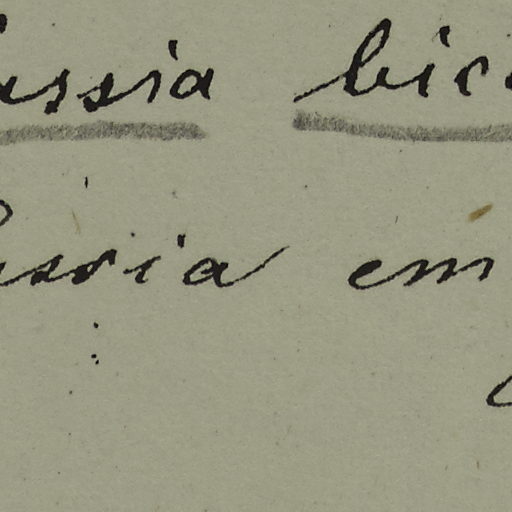 assia bic
assia em